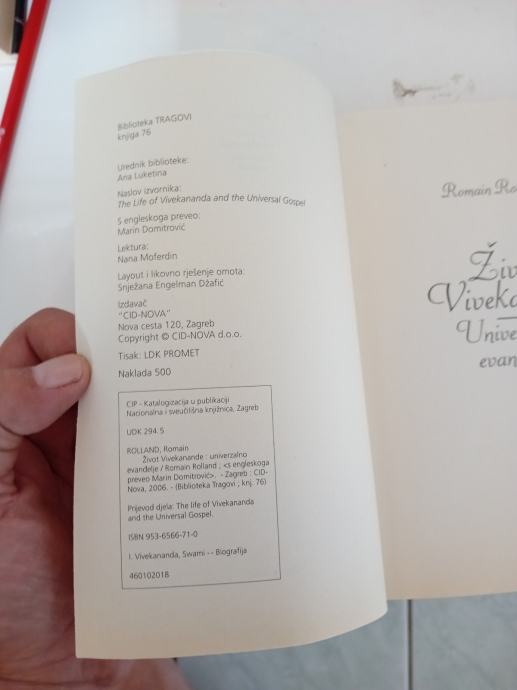 Biblioteka TRAGOVI
knjiga 76
Urednik biblioteke:
Ana Luketina
Naslov izvornika:
The Life of Vivekananda and the Universal Gospel
S engleskoga preveo:
Marin Domitrović
Lektura:
Nana Moferdin
Layout i likovno rješenje omota:
Snježana Engelman Džafić
Izdavač
"CID-NOVA"
Nova cesta 120, Zagreb
Copyright © CID-NOVA d.o.o.
Tisak: LDK PROMET
Naklada 500
CIP - Katalogizacija u publikaciji
Nacionalna i sveučilišna knjižnica, Zagreb
UDK 294.5
ROLLAND, Romain
Život Vivekanande : univerzalno
evanđelje / Romain Rolland ; <s engleskoga
preveo Marin Domitrović>. - Zagreb : CID-
Nova, 2006. - (Biblioteka Tragovi ; knj. 76)
Prijevod djela: The life of Vivekananda
and the Universal Gospel.
ISBN 953-6566-71-0
I. Vivekananda, Swami -- Biografija
460102018
Romain Ro
Živ
Viveka
Unive
evan